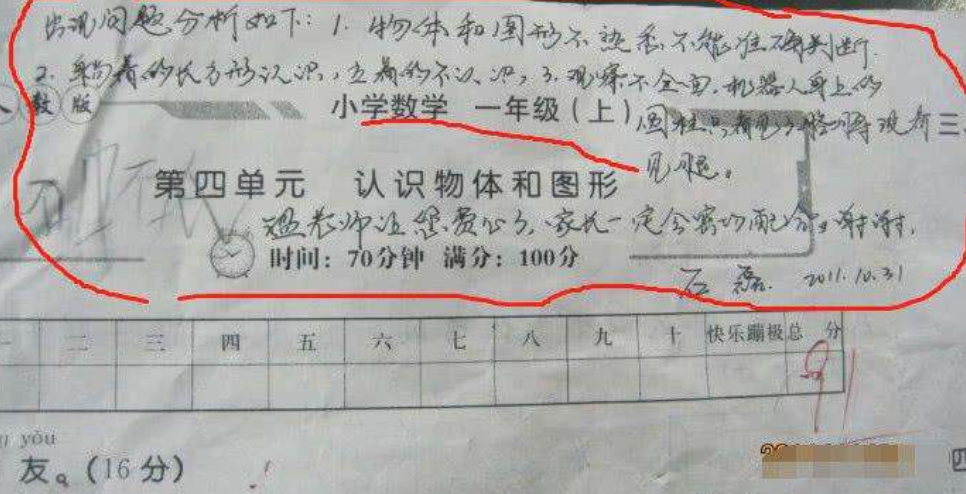 出现问题分析如下：1. 物体和图形不熟悉不能准确判断.
2. 躺着的长方形认识，立着的不认识，3. 观察不全面，机器人身上的
人教版
小学数学 一年级（上）
圆柱只看见了胳膊没有
三、
见腿。
第四单元 认识物体和图形
老师您费心了、家长一定会密切配合。谢谢.
时间：70分钟 满分：100分
石磊. 2011.10.31
一 二 三 四 五 六 七 八 九 十 快乐蹦极 总 分
91
yǒu
友。(16分)
四